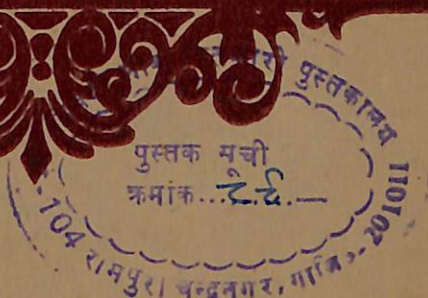 पुस्तकालय
पुस्तक सूची
क्रमांक...८.८.—
104 रामपुरा चन्द्रनगर, गाजि०- 201011